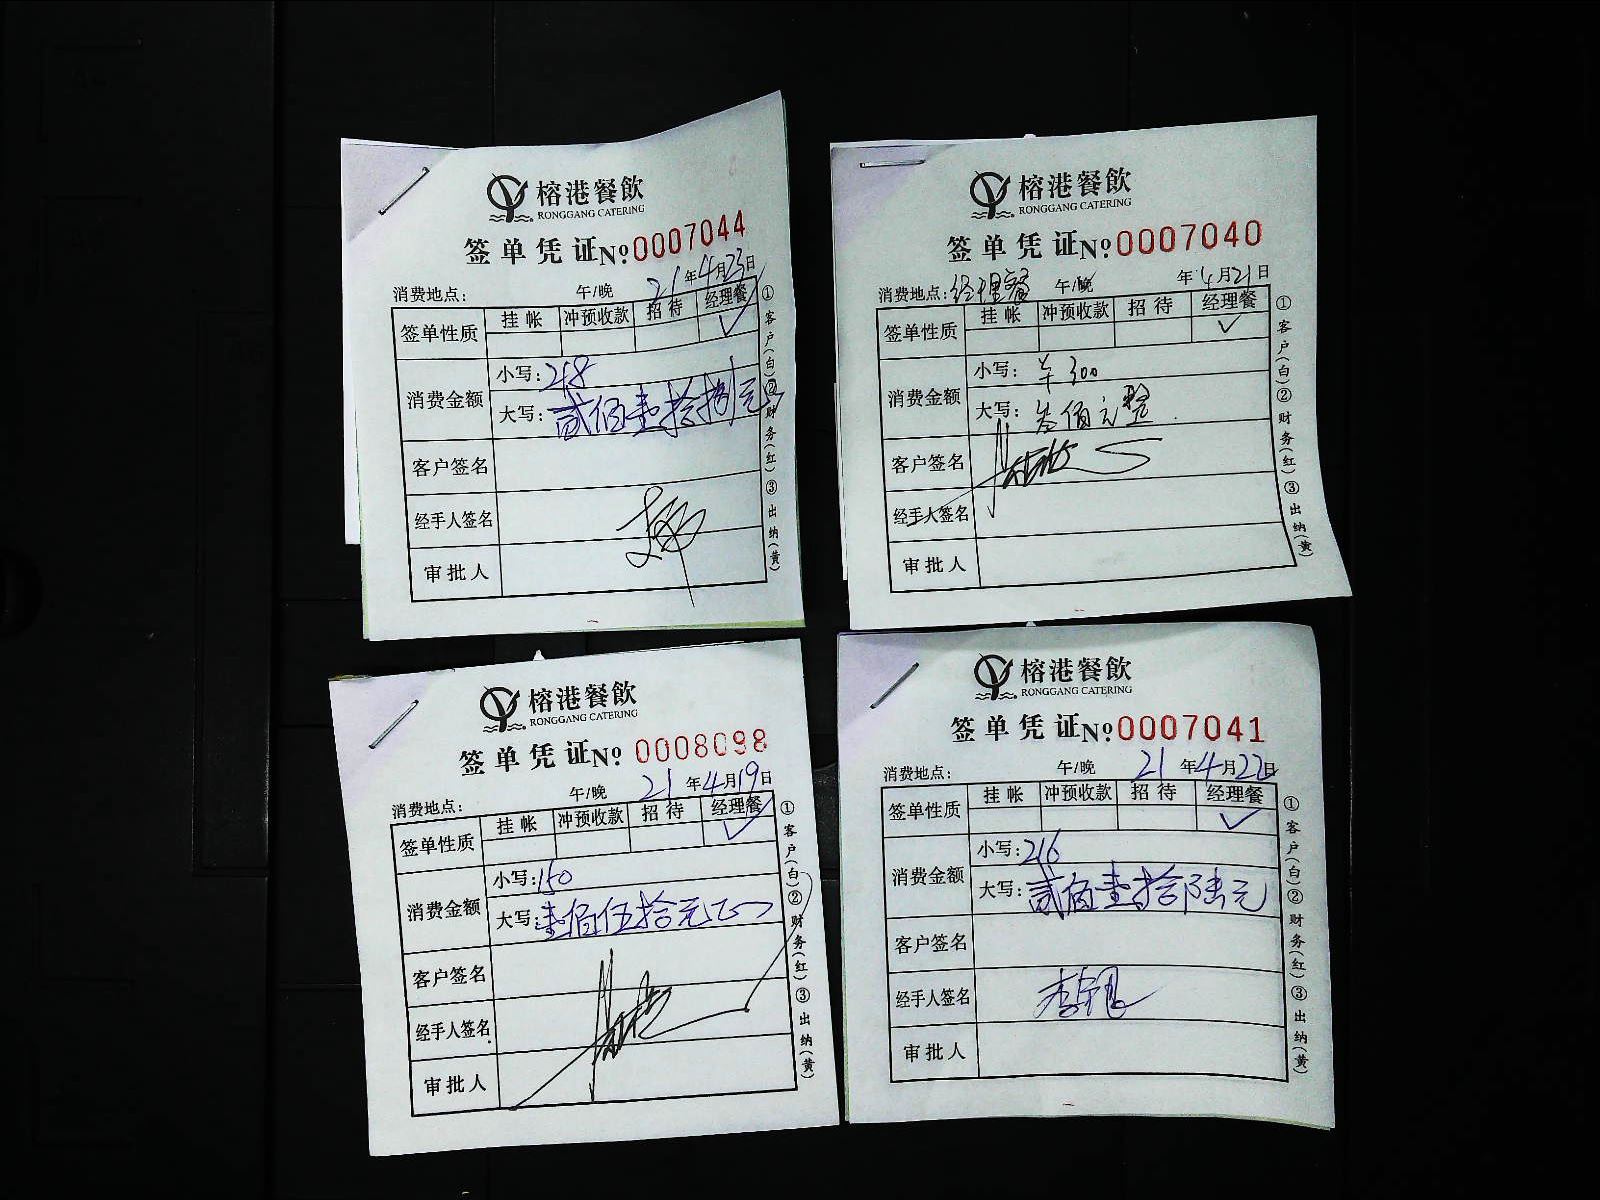 榕港餐飲
RONGGANG CATERING
签单凭证№ 0007044
21年4月23日
消费地点： 午/晚
签单性质 挂帐 冲预收款 招待 经理餐
✓
消费金额
小写：218
大写：贰佰壹拾捌元
客户签名
经手人签名
审批人
①客户（白）②财务（红）③出纳（黄）
榕港餐飲
RONGGANG CATERING
签单凭证№ 0007040
消费地点：经理餐 午/晚 年4月21日
签单性质 挂帐 冲预收款 招待 经理餐
✓
消费金额
小写：¥300
大写：叁佰元整
客户签名
经手人签名
审批人
①客户（白）②财务（红）③出纳（黄）
榕港餐飲
RONGGANG CATERING
签单凭证№ 0008098
21年4月19日
消费地点： 午/晚
签单性质 挂帐 冲预收款 招待 经理餐
✓
消费金额
小写：150
大写：壹佰伍拾元正
客户签名
经手人签名
审批人
①客户（白）②财务（红）③出纳（黄）
榕港餐飲
RONGGANG CATERING
签单凭证№ 0007041
消费地点： 午/晚 21年4月22日
签单性质 挂帐 冲预收款 招待 经理餐
✓
消费金额
小写：216
大写：贰佰壹拾陆元
客户签名
经手人签名
审批人
①客户（白）②财务（红）③出纳（黄）